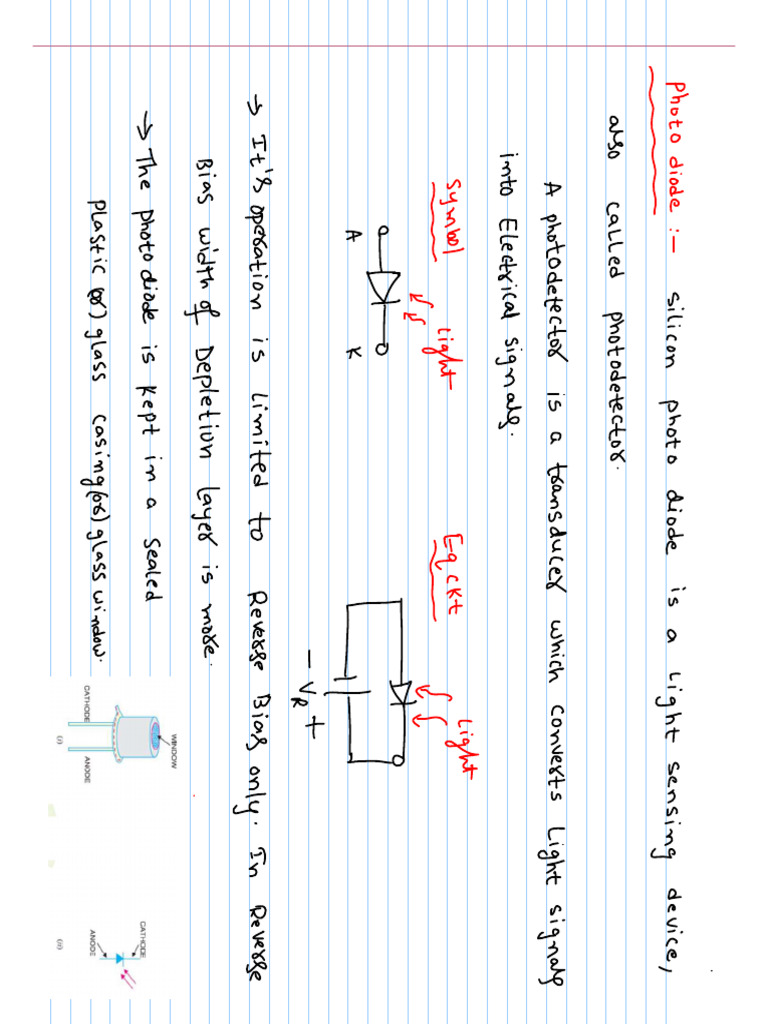 Photo diode :- silicon photo diode is a Light sensing device,
also called photodetector.
A photodetector is a transducer which converts Light signals
into Electrical signals.
Symbol
Light
A
K
Eq ckt
Light
- VR +
→ It's operation is Limited to Reverse Bias only. In Reverse
Bias width of Depletion layer is more.
→ The photodiode is kept in a sealed
plastic (or) glass casing (or) glass window.
WINDOW
CATHODE
ANODE
(i)
CATHODE
ANODE
(ii)